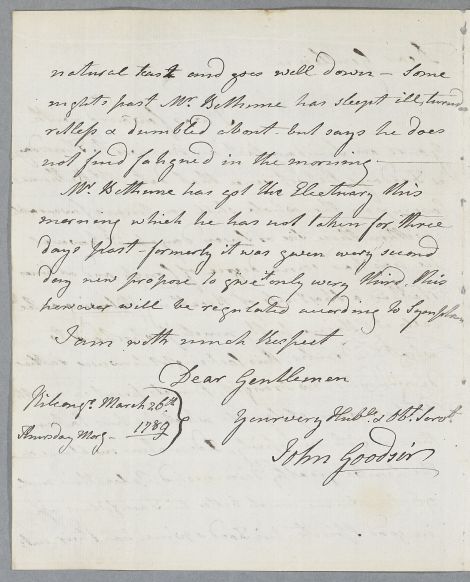 natural taste and goes well down – Some
nights past Mr. Bethune has slept ill, turnd
restless & dumbled about but says he does
not find fatigued in the morning –
Mr. Bethune has got the Electuary this
morning which he has not taken for three
days past – formerly it was given every second
day now propose to give only every third, this
however will be regulated according to Symptoms
I am with much Respect.
Dear Gentlemen
Your very Huble. & Obt. Servt.
John Goodsir
Kilcongr. March 26th.
Thursday Morg – 1789